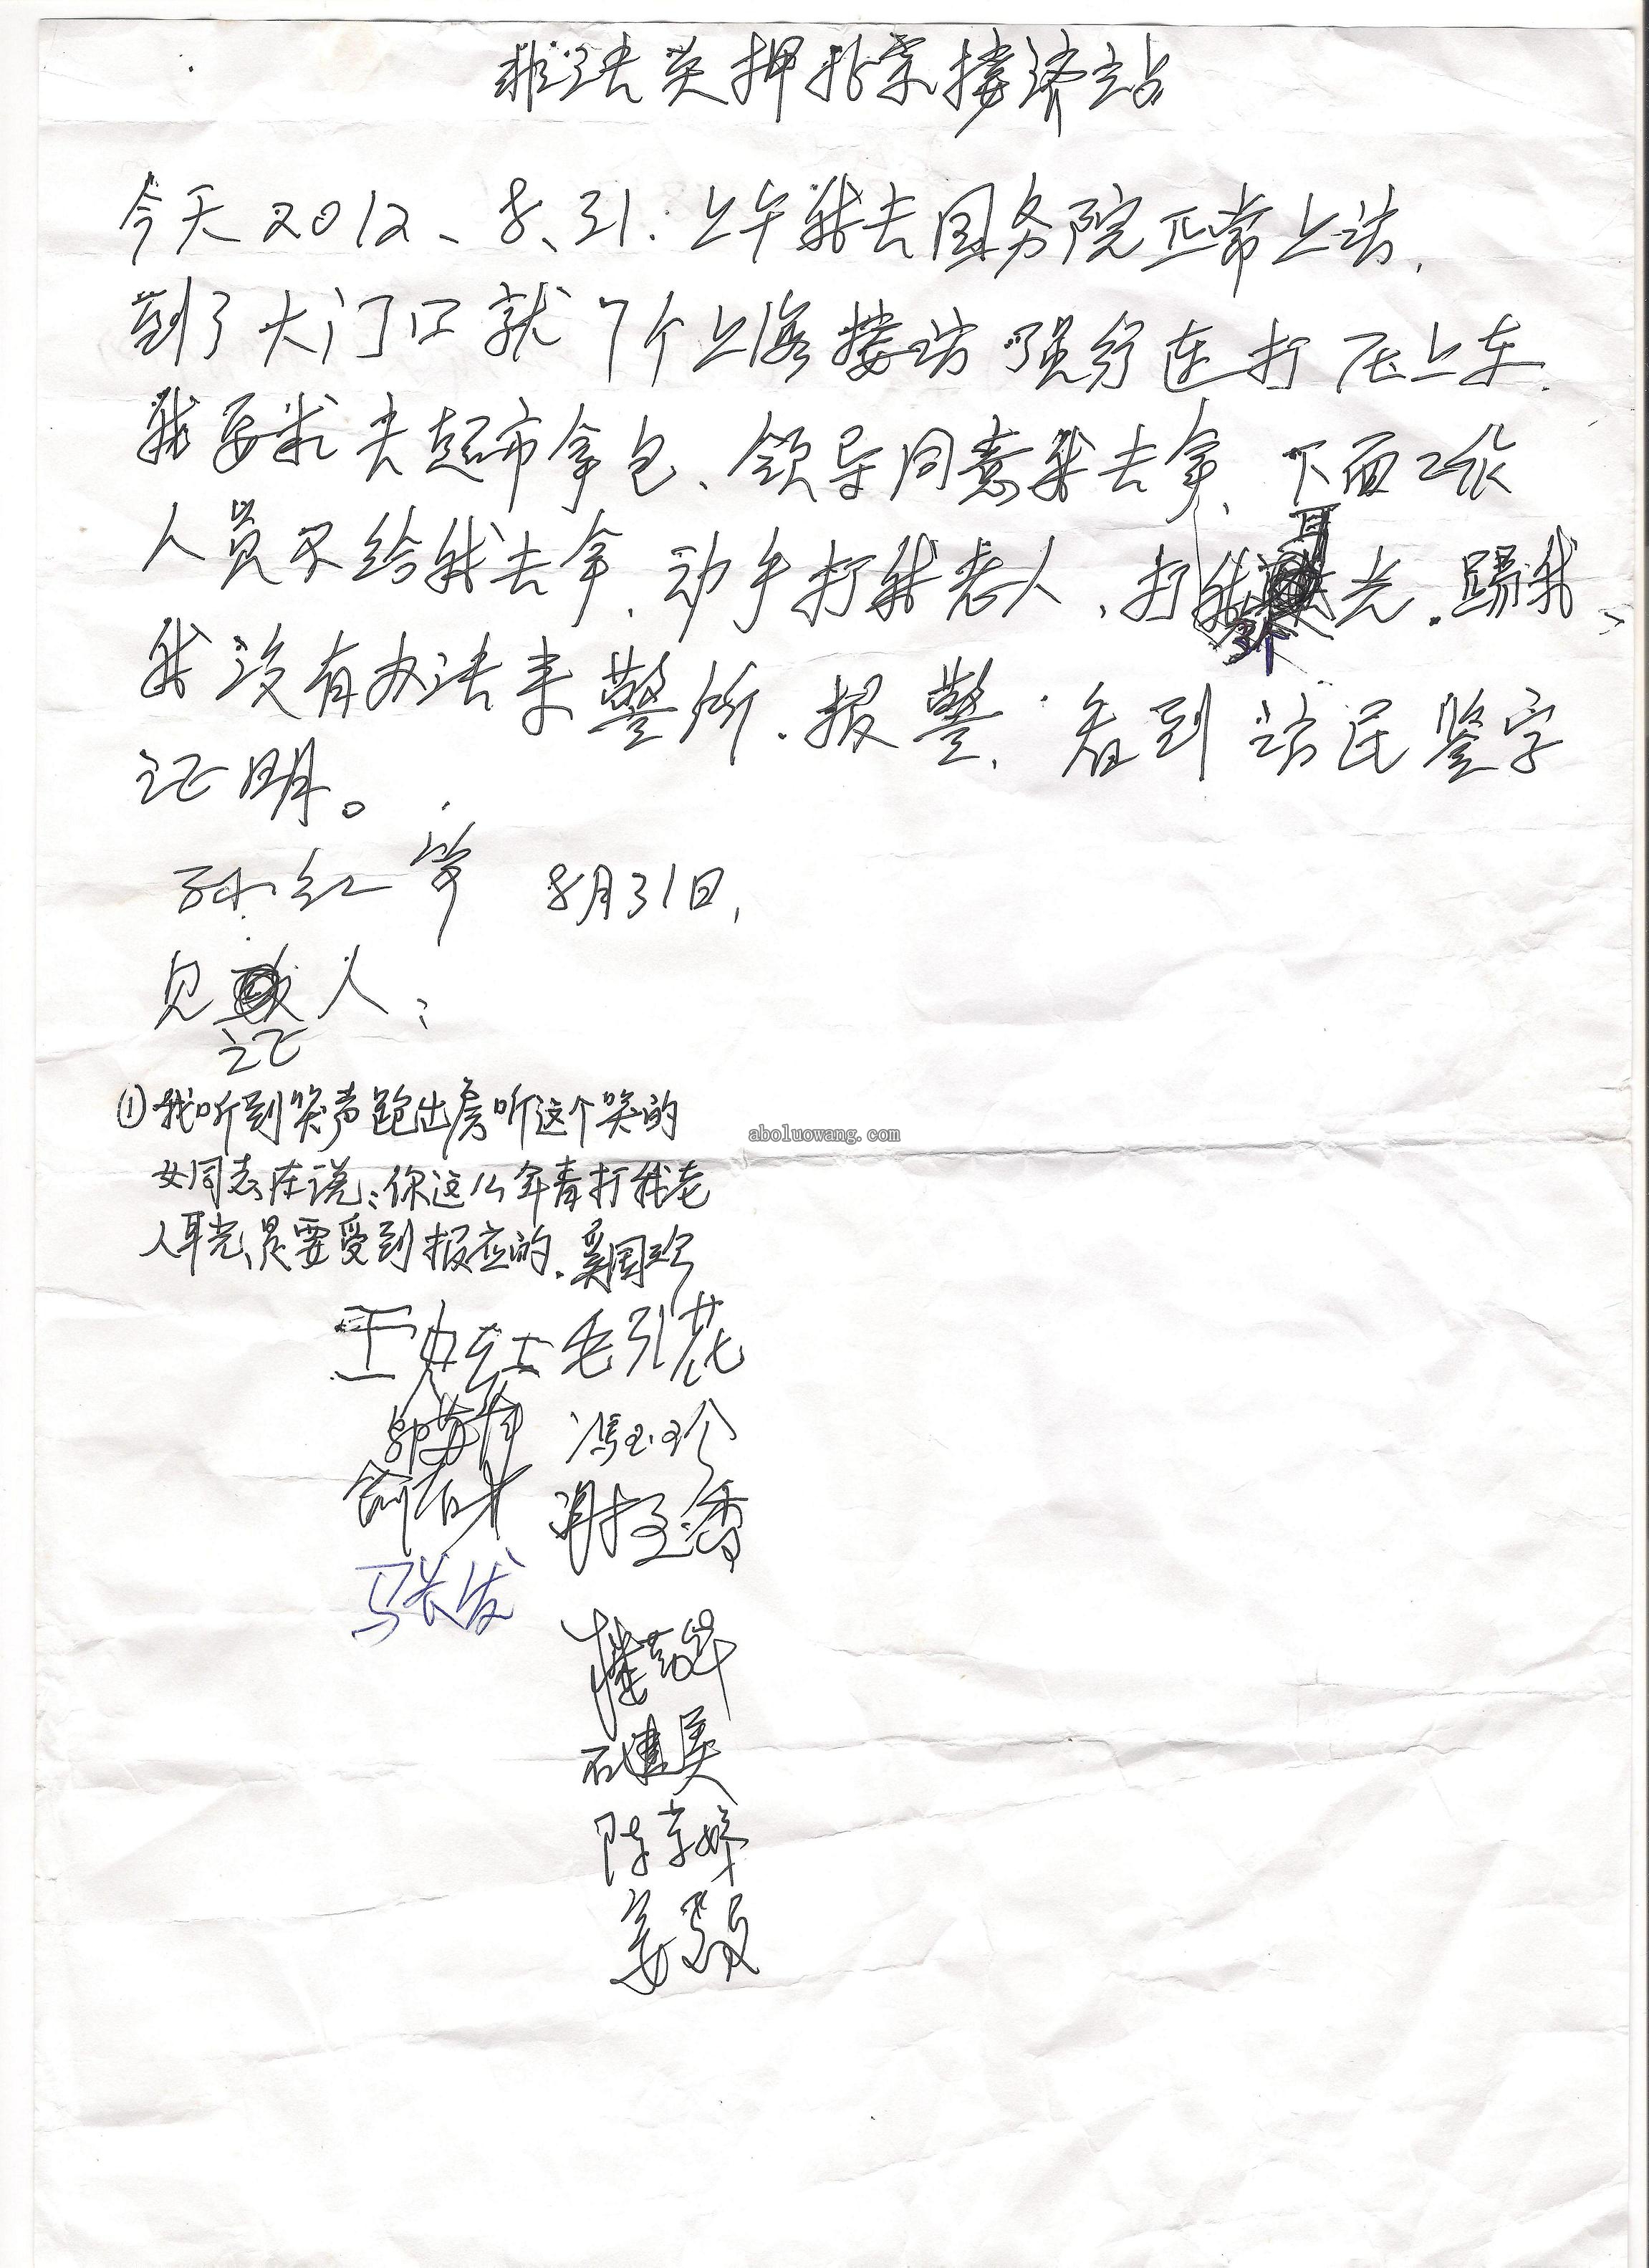 非法关押北京接济站
今天2012、8、31.上午我去国务院正常上访.
到了大门口就7个上海接访强行连打压上车.
我要求去超市拿包、领导同意我去拿、下面工作
人员不给我去拿.动手打我老人、打我耳光.踢我、
我没有办法来警所.报警.看到访民签字
证明。
孙红 8月31日,
见证人:
①我听到哭声跑出房听这个哭的
女同志在说:你这么年青打我老
人耳光,是要受到报应的.奚国珍
aboluowang.com
王 毛引花
冯玉珍
谢玉香
马长发
石建美
陈
姜